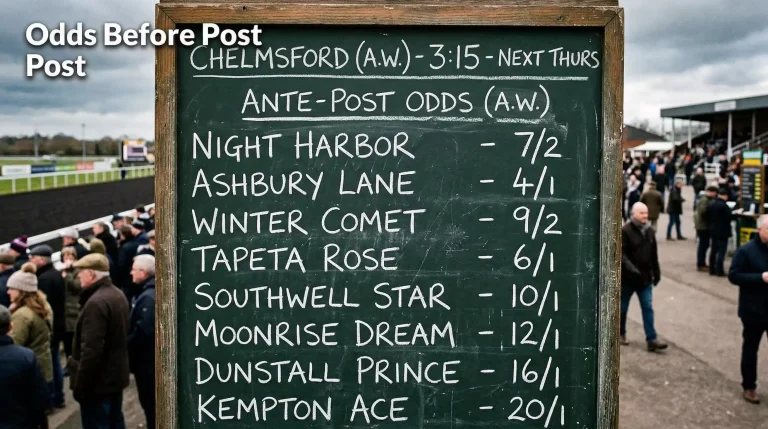 Odds Before Post
Post
CHELMSFORD (A.W.) - 3:15 - NEXT THURS
ANTE-POST ODDS (A.W.)
NIGHT HARBOR - 7/2
ASHBURY LANE - 4/1
WINTER COMET - 9/2
TAPETA ROSE - 6/1
SOUTHWELL STAR - 10/1
MOONRISE DREAM - 12/1
DUNSTALL PRINCE - 16/1
KEMPTON ACE - 20/1